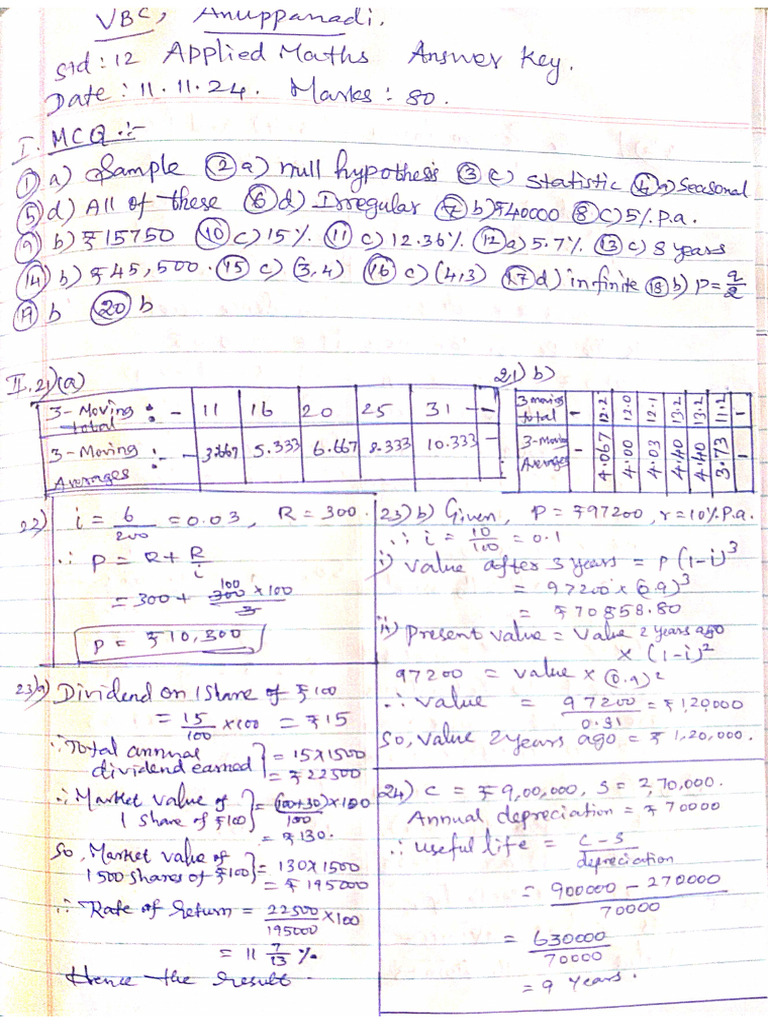 VBC, Anuppanadi.
Std: 12 Applied Maths Answer Key.
Date: 11.11.24. Marks: 80.
I. MCQ:-
① a) Sample ② a) null hypothesis ③ c) Statistic ④ a) Seasonal
⑤ d) All of these ⑥ d) Irregular ⑦ b) ₹40000 ⑧ c) 5% p.a.
⑨ b) ₹15750 ⑩ c) 15% ⑪ c) 12.36% ⑫ a) 5.7% ⑬ c) 8 years
⑭ b) ₹45,500. ⑮ c) (3,4) ⑯ c) (4,3) ⑰ d) infinite ⑱ b) p = q/2
⑲ b ⑳ b
II. 21)(a)
3-Moving total :- - 11 16 20 25 31 -
3-Moving Averages :- - 3.667 5.333 6.667 8.333 10.333 -
21) b)
3 moving total - 12.2 12.0 12.1 13.2 13.2 11.2 -
3-Moving Averages - 4.067 4.00 4.03 4.40 4.40 3.73 -
22) i = 6/200 = 0.03, R = 300.
∴ P = R + R/i
= 300 + 300 100 × 100/3
P = ₹10,300
23)a) Dividend on 1 Share of ₹100
= 15/100 × 100 = ₹15
∴ Total annual dividend earned } = 15 × 1500
= ₹22500
∴ Market value of 1 share of ₹100 } = (100+30)/100 × 100
= ₹130.
So, Market value of 1500 shares of ₹100 } = 130 × 1500
= ₹195000
∴ Rate of return = 22500/195000 × 100
= 11 7/13 %
Hence the result.
23) b) Given, P = ₹97200, r = 10% p.a.
∴ i = 10/100 = 0.1
i) Value after 3 years = P(1-i)^3
= 97200 × (0.9)^3
= ₹70858.80
ii) Present value = Value 2 years ago
× (1-i)^2
97200 = value × (0.9)^2
∴ value = 97200/0.81 = ₹120000
So, value 2 years ago = ₹1,20,000.
24) C = ₹9,00,000, S = 2,70,000.
Annual depreciation = ₹70000
∴ Useful life = C-S/depreciation
= 900000 - 270000/70000
= 630000/70000
= 9 years.